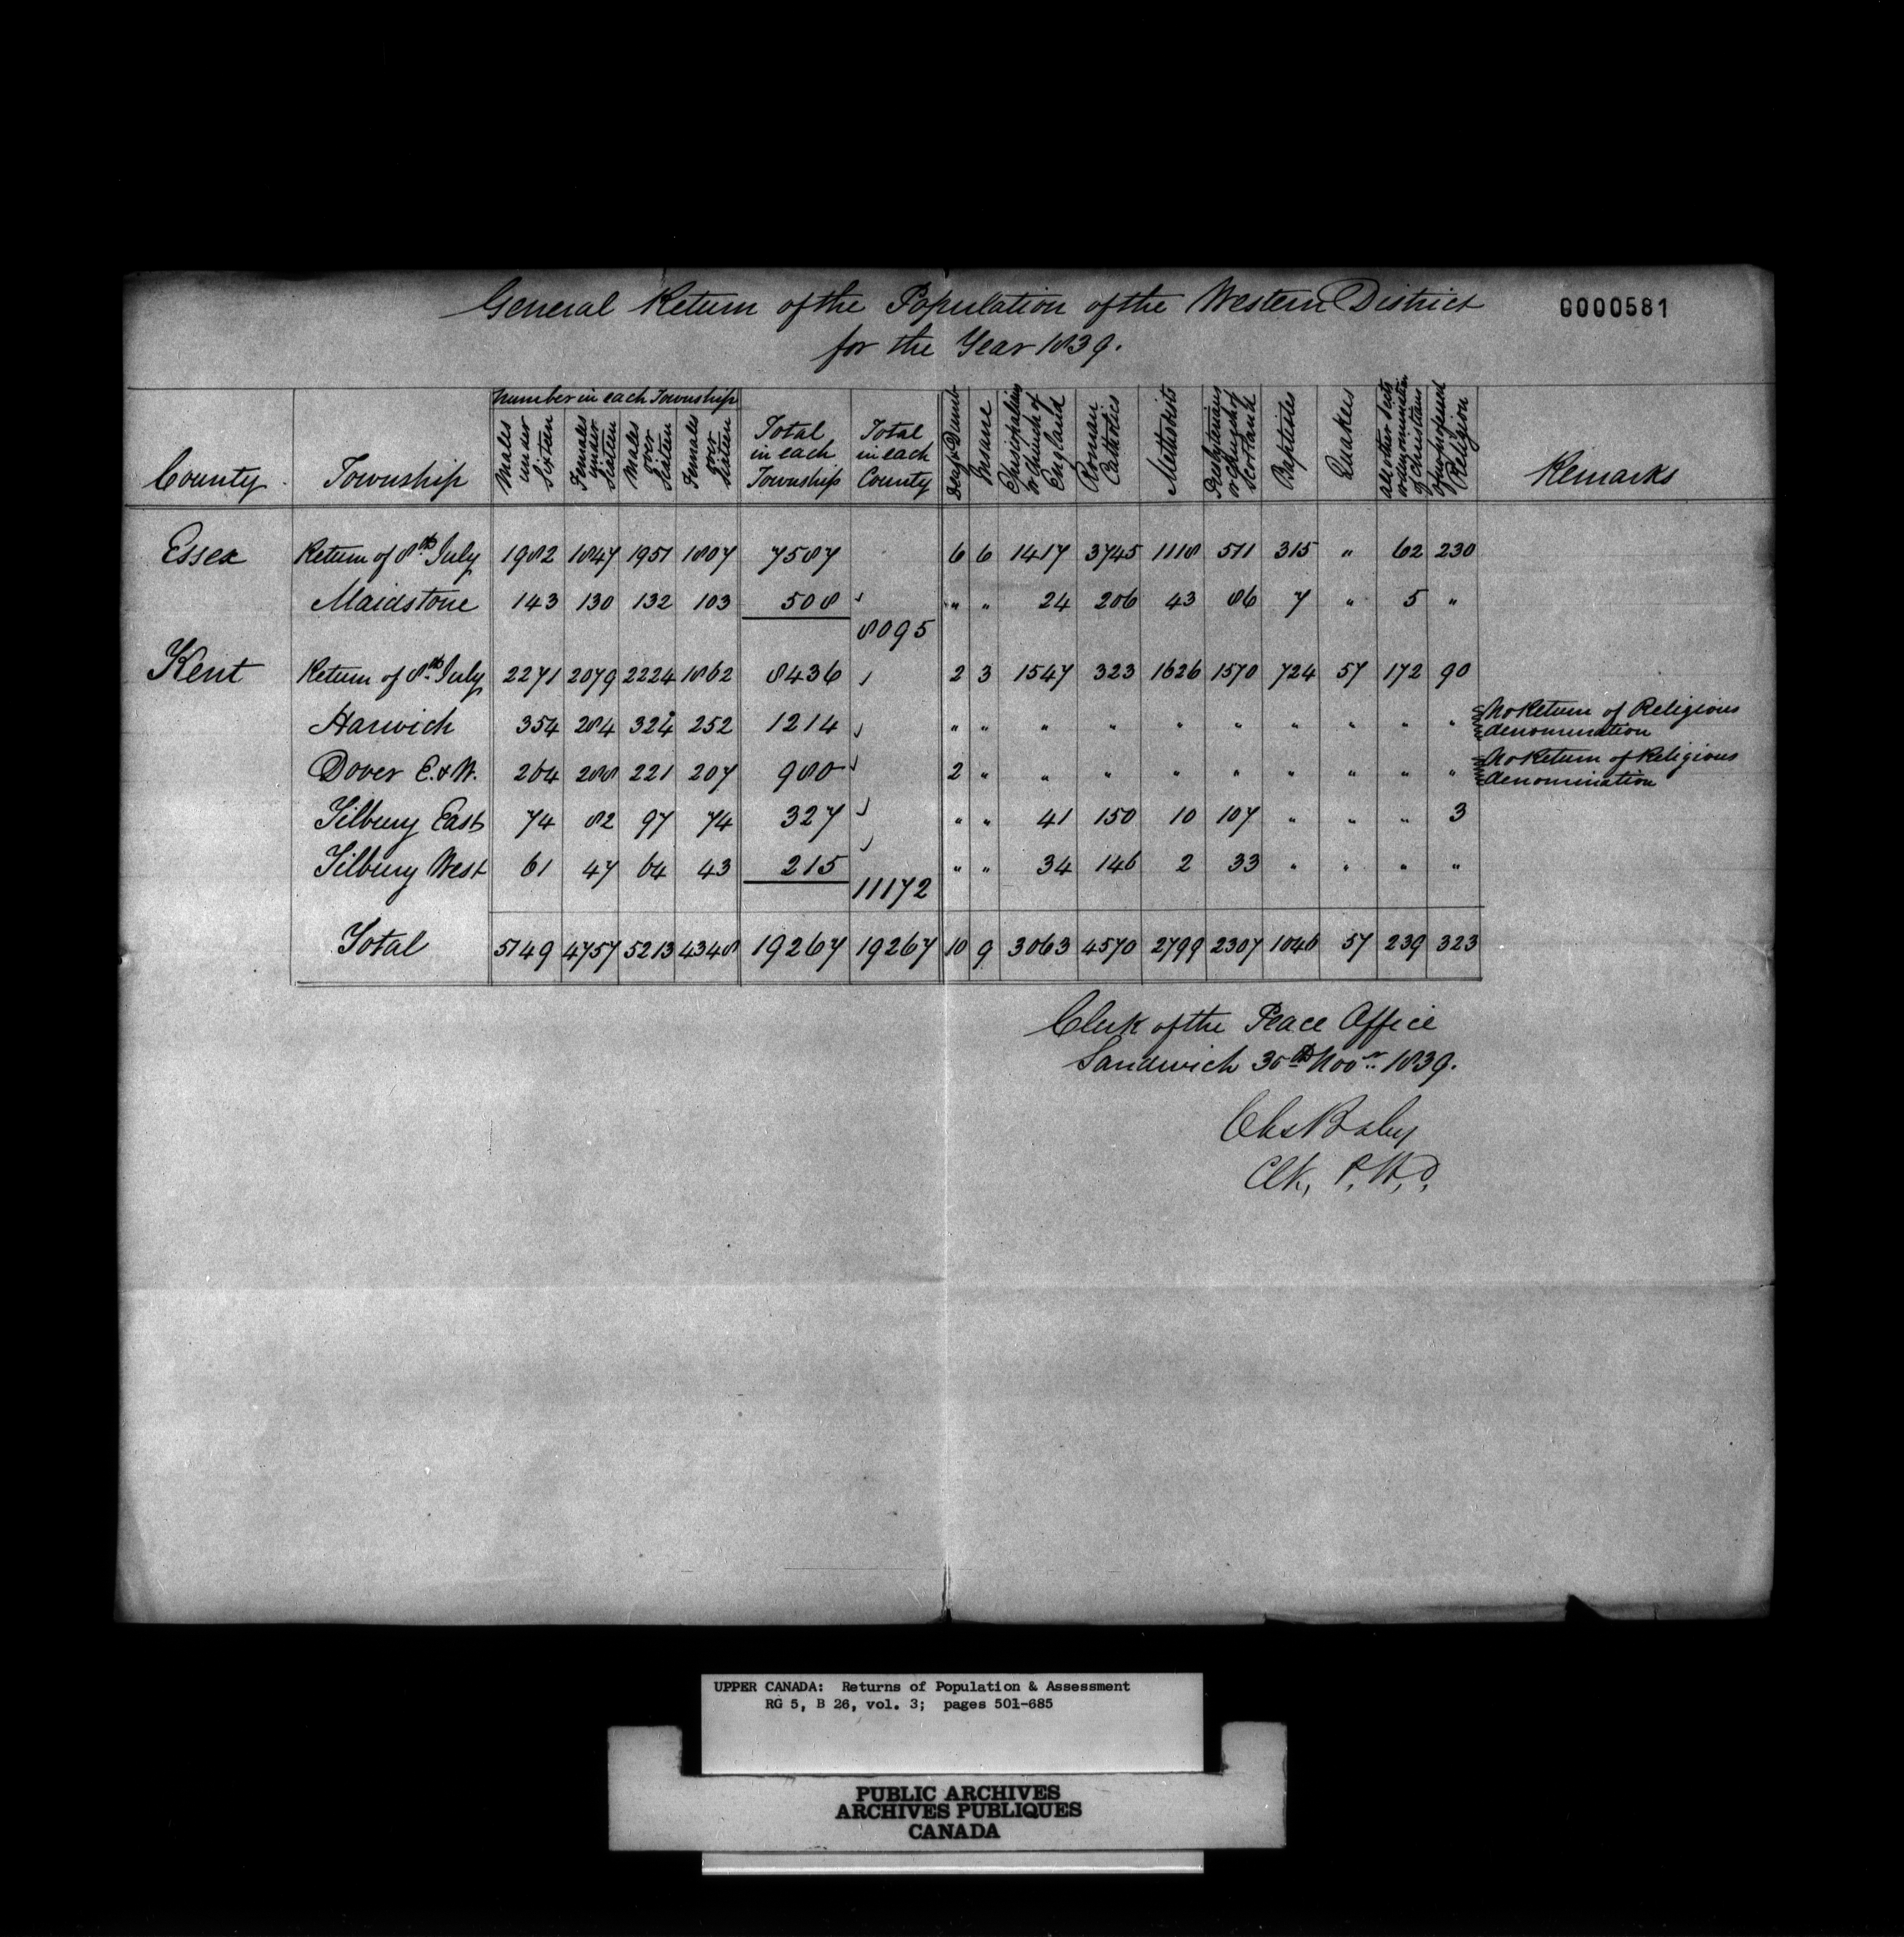 General Return of the Population of the Western District
for the Year 1839.
G000581
County Township Number in each Township Males under Sixteen Females under Sixteen Males over Sixteen Females over Sixteen Total in each Township Total in each County Deaf & Dumb Insane Episcopalians or Church of England Roman Catholics Methodists Presbyterians or Church of Scotland Baptistes Quakers All other Sects or denomination of Christians Religion Remarks
Essex Return of 8th July 1982 1847 1951 1807 7587 6 6 1417 3745 1118 511 315 " 62 230
Maidstone 143 130 132 103 508 " " 24 206 43 86 7 " 5 "
8095
Kent Return of 8th July 2271 2079 2224 1862 8436 2 3 1547 323 1626 1570 724 57 172 90
Harwich 354 284 324 252 1214 " " " " " " " " " " No Return of Religious denomination
Dover E. & W. 264 288 221 207 980 2 " " " " " " " " " No Return of Religious denomination
Tilbury East 74 82 97 74 327 " " 41 150 10 107 " " " 3
Tilbury West 61 47 64 43 215 " " 34 146 2 33 " " " "
11172
Total 5149 4757 5213 4348 19267 19267 10 9 3063 4570 2799 2307 1046 57 239 323
Clerk of the Peace Office
Sandwich 30th Novr. 1839.
Chs Baby
Clk, P. W. D.
UPPER CANADA: Returns of Population & Assessment
RG 5, B 26, vol. 3; pages 501-685
PUBLIC ARCHIVES
ARCHIVES PUBLIQUES
CANADA